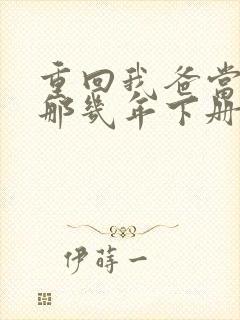 重回我爸当
那几年下册
伊莳一